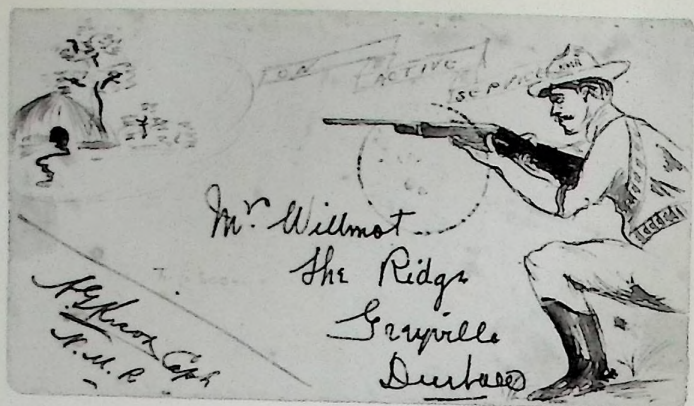 ON ACTIVE SERVICE
NMR
Mr Willmot
The Ridge
Greyville
Durban
Capt
N.M.R